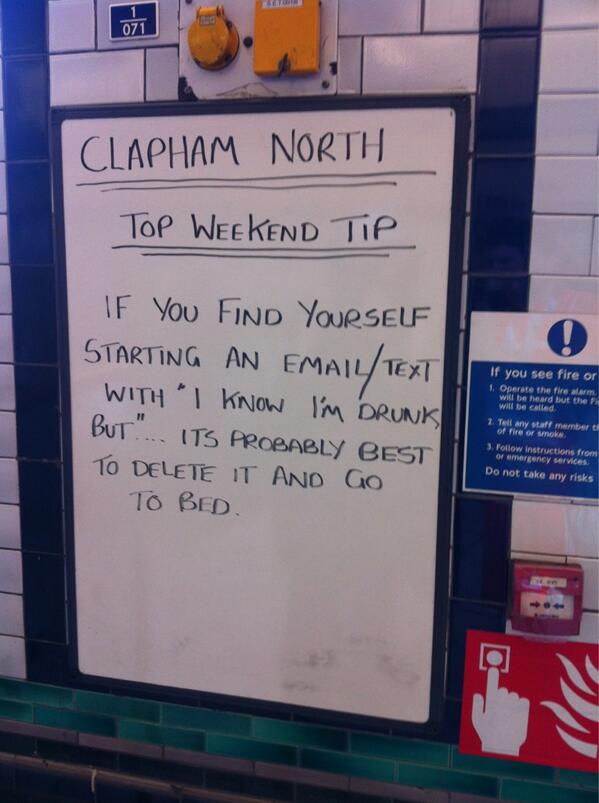 1
071
CLAPHAM NORTH
TOP WEEKEND TIP
IF YOU FIND YOURSELF
STARTING AN EMAIL/TEXT
WITH "I KNOW I'M DRUNK
BUT".... ITS PROBABLY BEST
TO DELETE IT AND GO
TO BED.
If you see fire or
1. Operate the fire alarm.
will be heard but the
will be called.
2. Tell any staff member
of fire or smoke.
3. Follow instructions from
or emergency services.
Do not take any risks